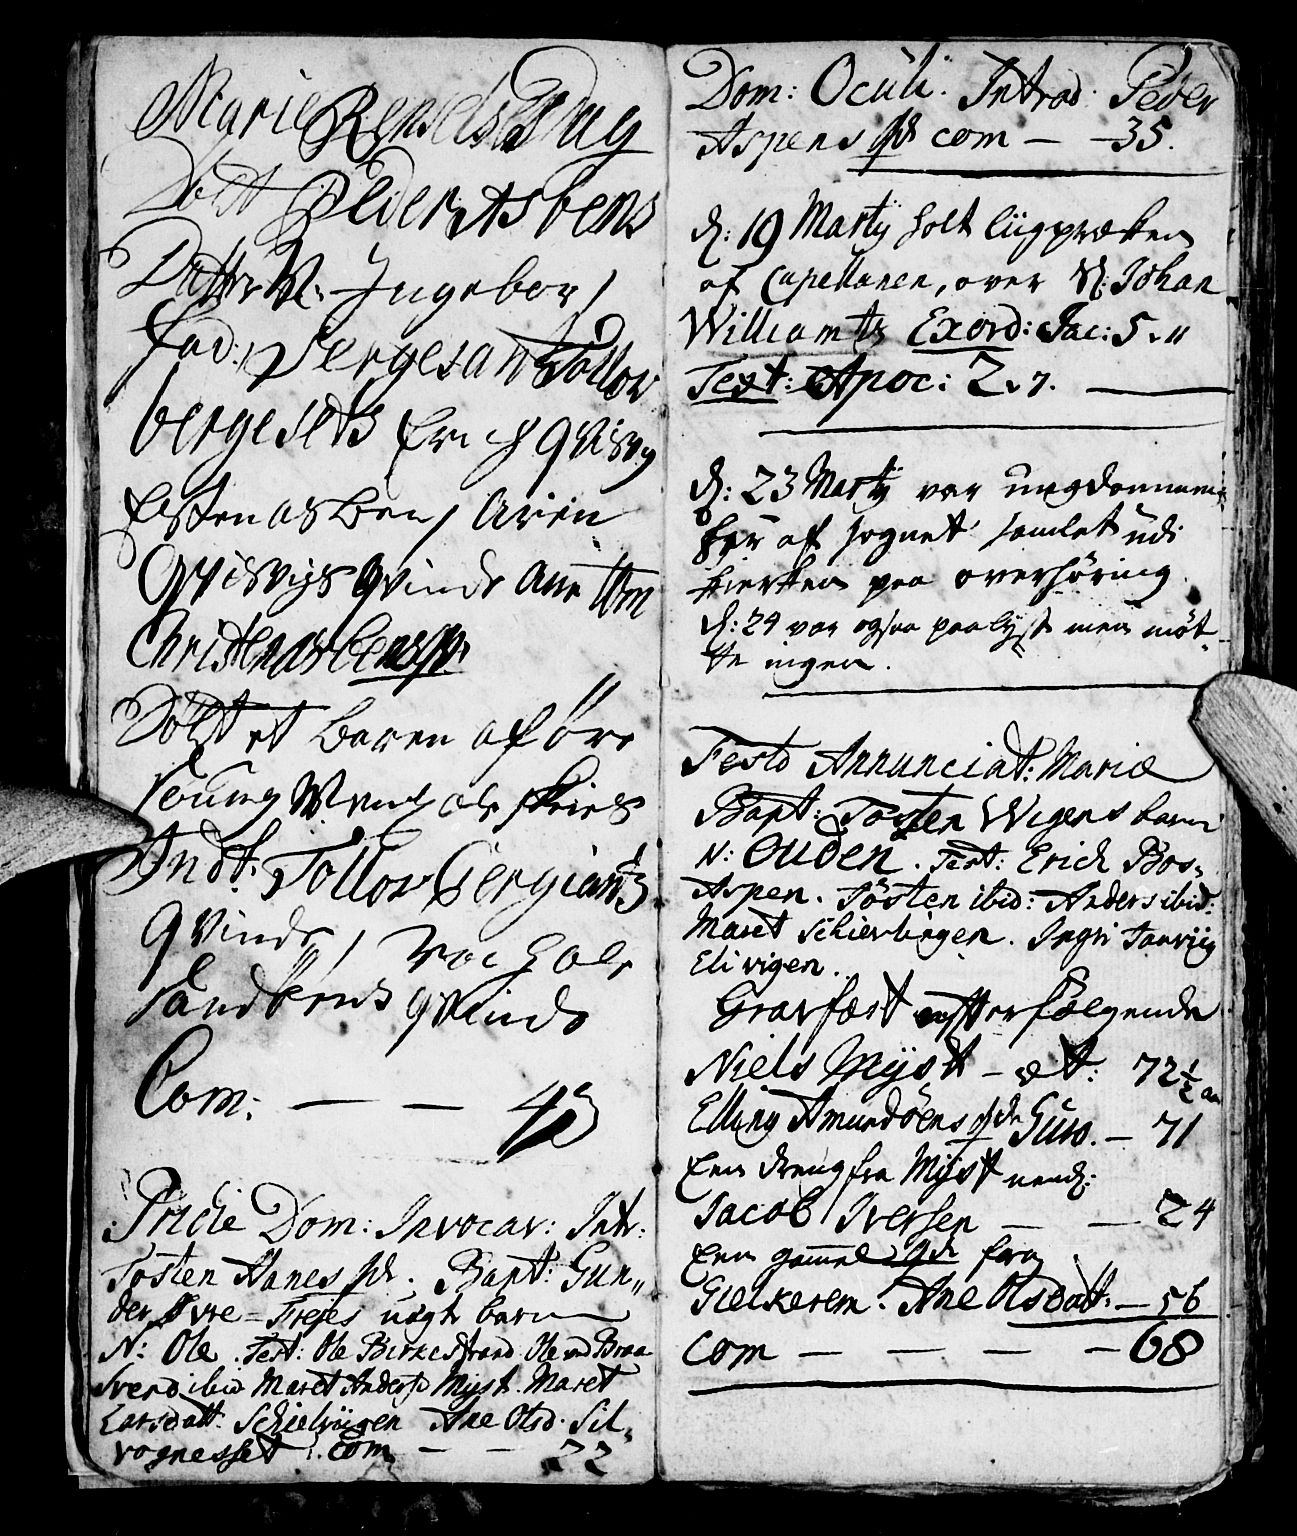 Marie
Døbt Peder Asbens
Datter N. Ingebor /
fad: Sergesant Tollov
bergesets Erich Qvisvig
Esten Asben / Aren
Qvisvigs Qvinde Ane
Christen Asbens
Døbt et barn af Øvre
Indt. Tollov Sergiants
Qvinde /
Sandbens Qvinde
Com: — — 43
Pridie Dom: Invocav: Intr:
Tosten Hanes qd. Bapt: Gun„
der Øvre-Trejes uegte barn
N: Ole. Test: Ole Birkestrand Ole
Svend ibid Maret Anders Myst. Maret
Larsdatt. Schielviigen Ane Olsd. Sil„
vognesset. Com — — 22
Dom: Oculi. Introd. Peder
Aspens qd. com — — 35.
d: 19 Martij holt liigprædken
af Capellanen, over Johan
Williamts Exord: Jac: 5. 11
Text: Apoc: 2. 7.
d: 23 Martij var ungdommen
her af sognet samlet udi
kierken paa overhøring.
d: 24 var ogsaa paalyst men møt-
te ingen.
Festo Annunciat: Mariæ
Bapt: Tosten Wigens barn
N: Ouden. Test: Erich Bos-
Aspen. Tosten ibid: Anders ibid:
Maret Schierlingen. Ingri Tanviig
Eli vigen.
Gravfæst efterfølgende
Niels Myst — æt: 72½ aar
Elling Amundøens qde Guro. — 71
Een dreng fra Myst nemlig:
Jacob Iversen — — 24
Een gamel qde fra
Gielkerem: Ane Olsdatt. — 56
Com — — — — 68